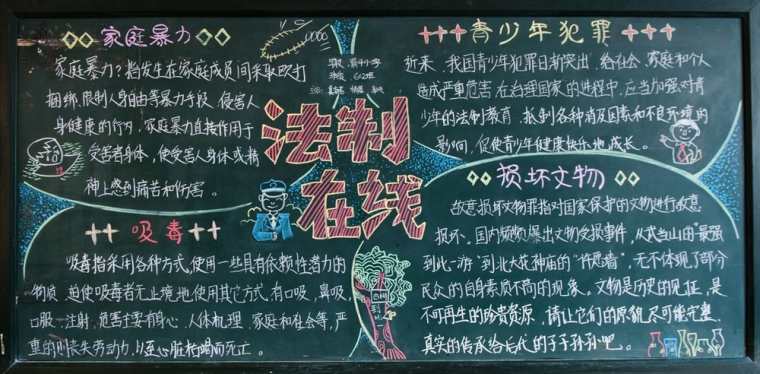 家庭暴力
家庭暴力？指发生在家庭成员间采取殴打
捆绑、限制人身自由等暴力手段，侵害人
身健康的行为，家庭暴力直接作用于
受害者身体，使受害人身体或精
神上感到痛苦和伤害。
法制
在线
青少年犯罪
近来，我国青少年犯罪日渐突出，给社会、家庭和个人
造成严重危害，在治理国家的进程中，应当加强对青
少年的法制教育，抵制各种消极因素和不良环境的
影响，促使青少年健康快乐地成长。
吸毒
吸毒指采用各种方式，使用一些具有依赖性潜力的
物质，迫使吸毒者无止境地使用其它方式，有口吸，鼻吸，
口服—注射，危害主要有身心、人体机理、家庭和社会等，严
重的则丧失劳动力，以至心脏枯竭而死亡。
损坏文物
故意损坏文物罪指对国家保护的文物进行故意
损坏。国内频频爆出文物受损事件，从武当山的"最强
到此一游"到北大花神庙的"许愿墙"，无不体现了部分
民众的自身素质不高的现象。文物是历史的见证，是
不可再生的珍贵资源，请让它们的原貌尽可能完整、
真实的传承给后代的子子孙孙吧。